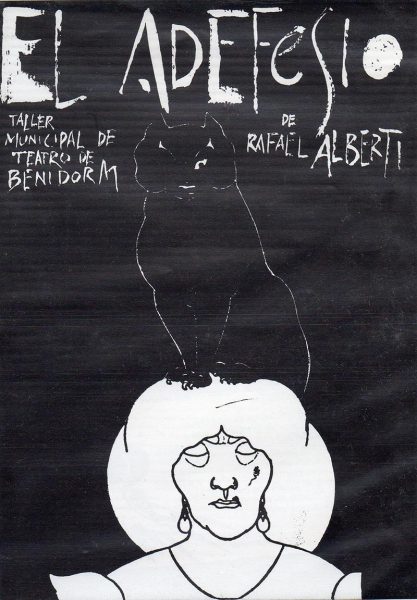 EL ADEFESIO
TALLER
MUNICIPAL DE
TEATRO DE
BENIDORM
DE
RAFAEL ALBERTI